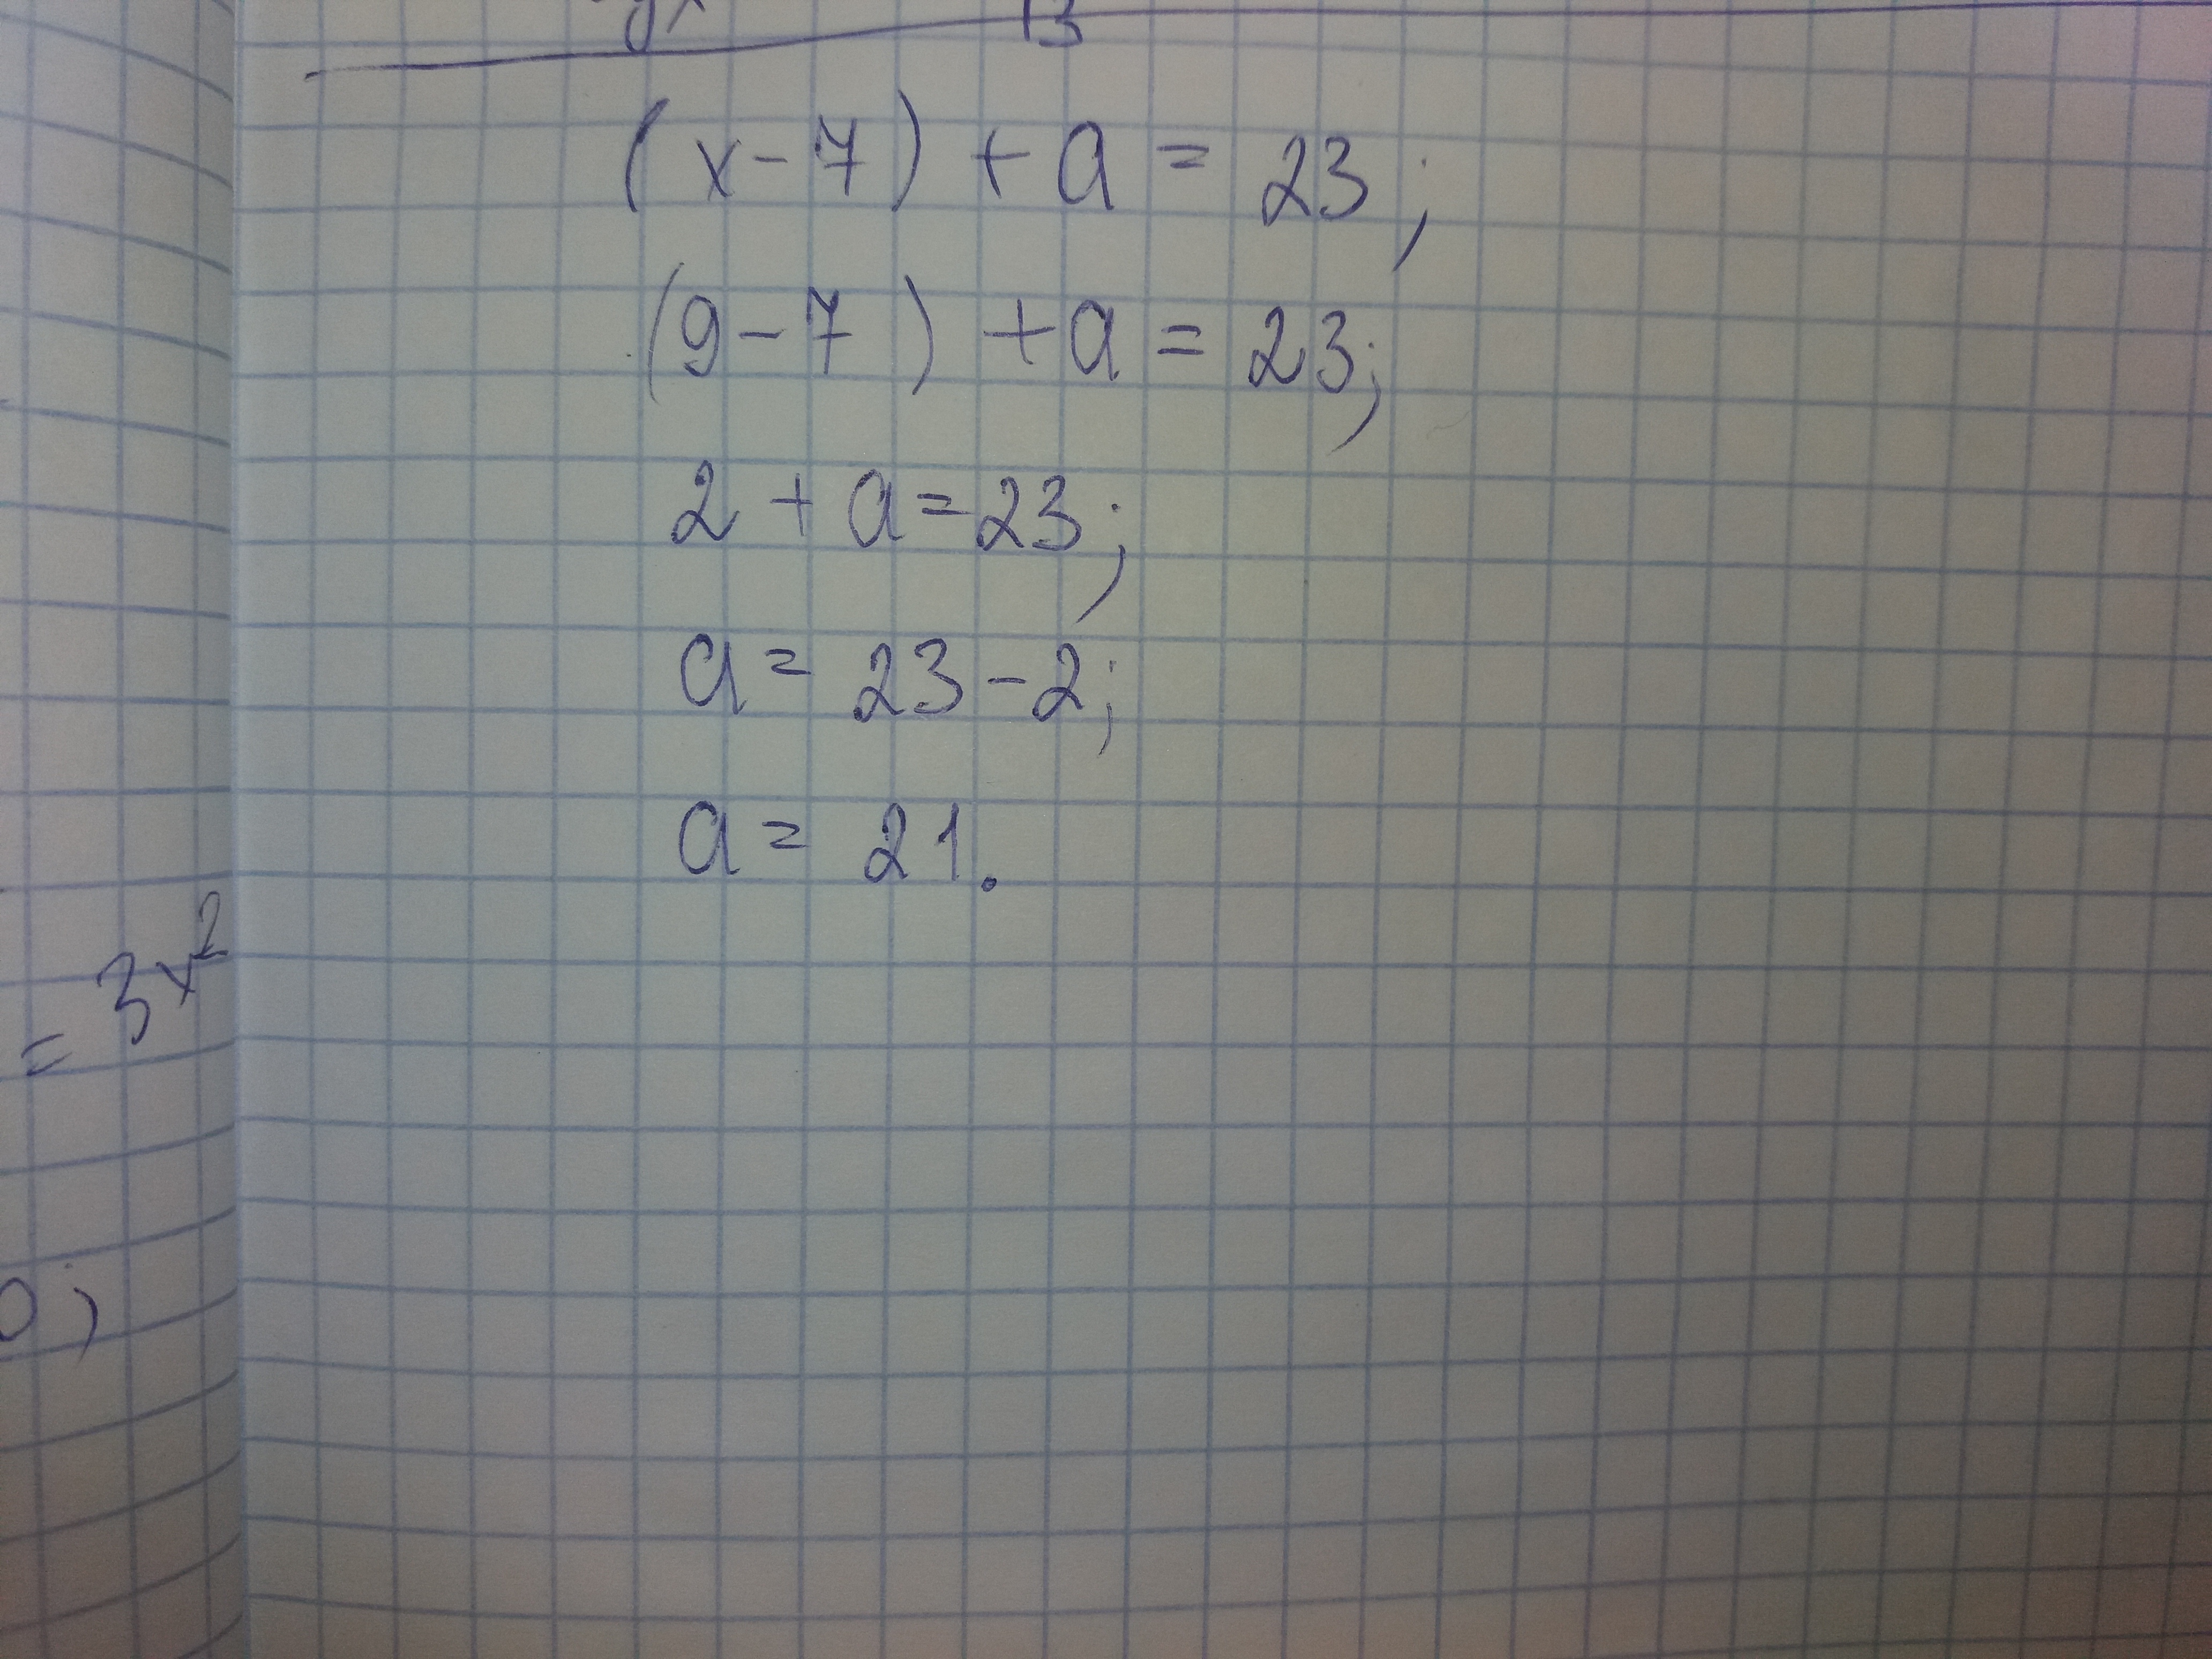 (x-7)+a=23;
(9-7)+a=23;
2+a=23;
a=23-2;
a=21.
=3x²
0;